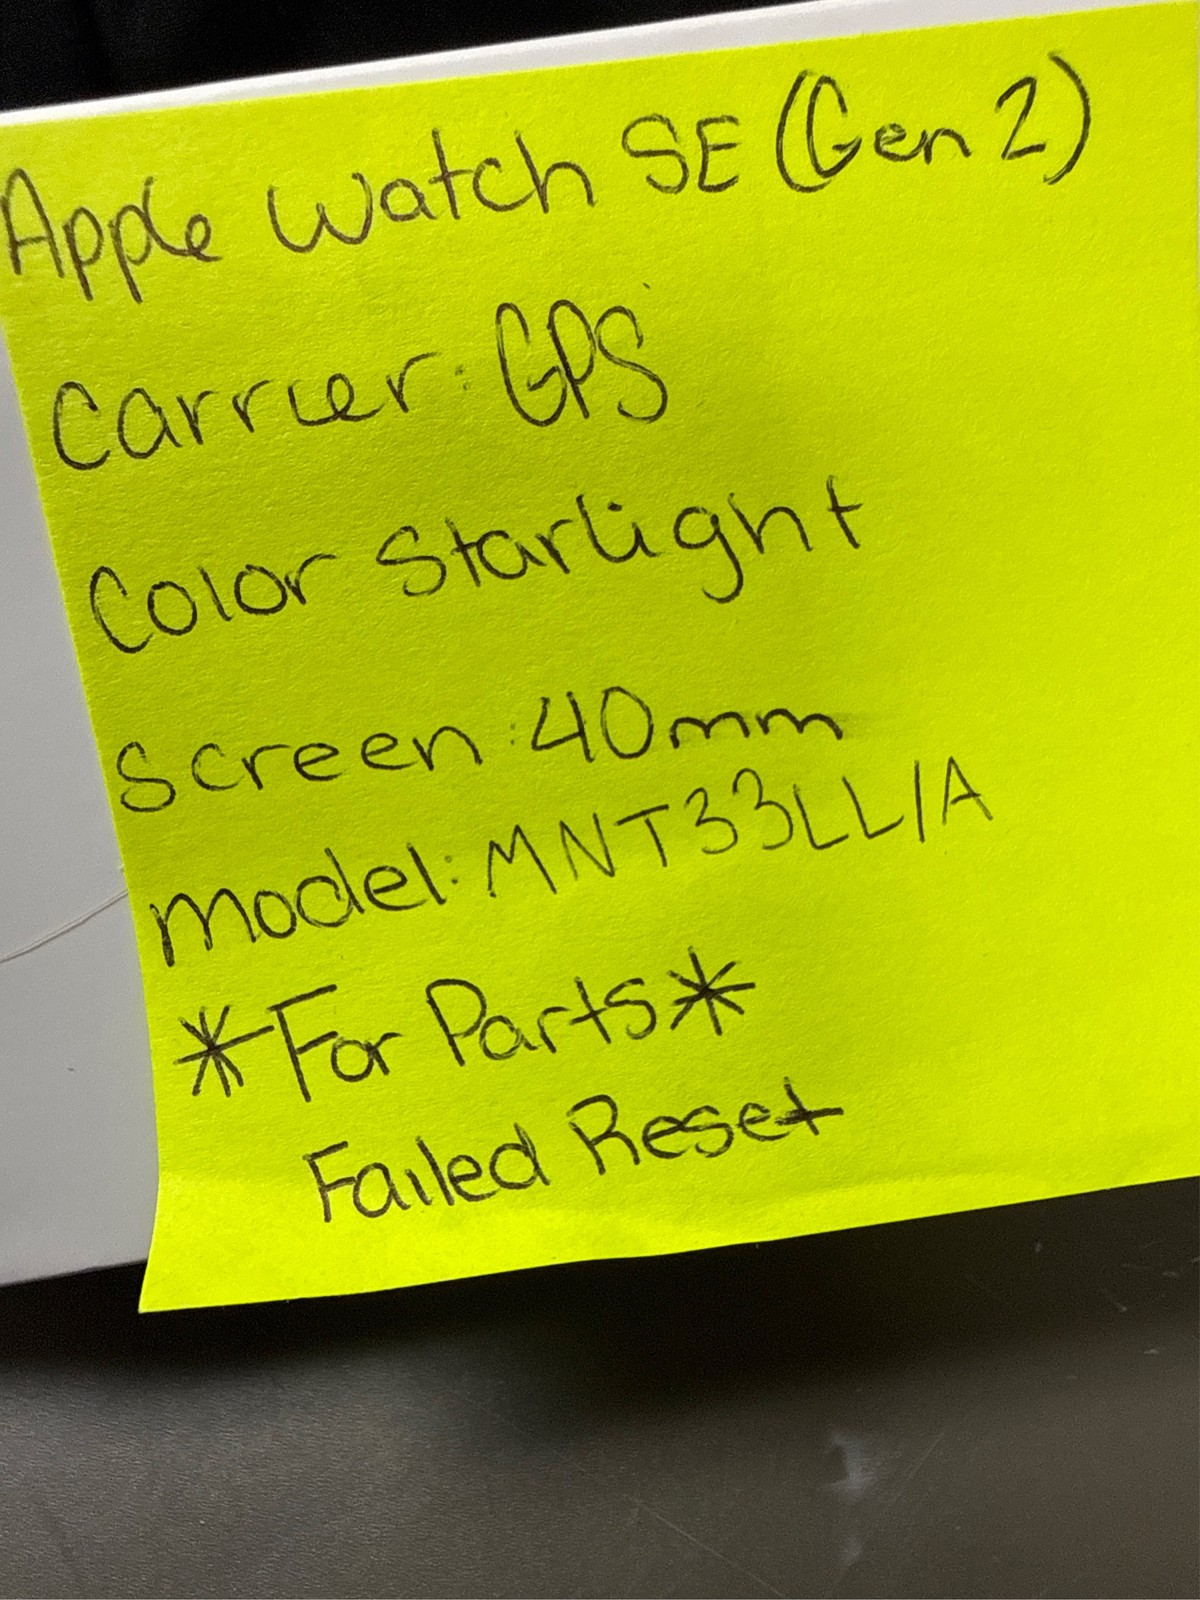 Apple Watch SE (Gen 2)
Carrier: GPS
Color Starlight
Screen: 40mm
Model: MNT33LL/A
*For Parts*
Failed Reset